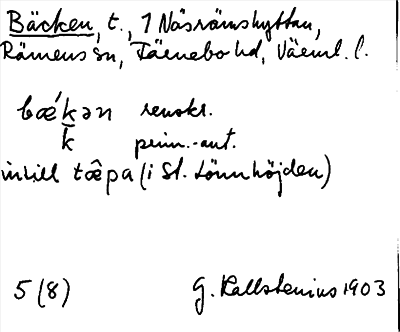 Bäcken, t., 1 Näsrämshyttan,
Rämens sn, Färnebo hd, Värml. l.
bǽkən renskr.
k prim.-ant.
intill tœ̂pa (i St. Lönnhöjden)
5 (8) G. Kallstenius 1903